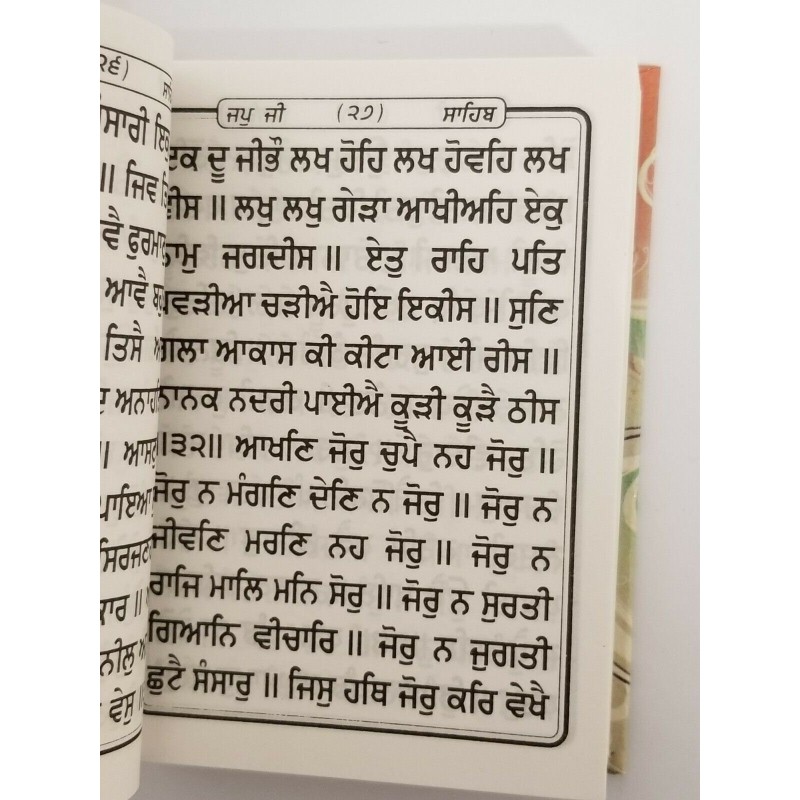 ੨੬)
ਇਕੁ
॥ ਜਿਵ
ਆਵੈ
ਤਿਸੈ
॥
ਪਾਇਆ
॥
ਵੇਸੁ
ਜਪੁ ਜੀ (੨੭) ਸਾਹਿਬ
ਇਕ ਦੂ ਜੀਭੌ ਲਖ ਹੋਹਿ ਲਖ ਹੋਵਹਿ ਲਖ
ਵੀਸ ॥ ਲਖੁ ਲਖੁ ਗੇੜਾ ਆਖੀਅਹਿ ਏਕੁ
ਨਾਮੁ ਜਗਦੀਸ ॥ ਏਤੁ ਰਾਹਿ ਪਤਿ
ਪਵੜੀਆ ਚੜੀਐ ਹੋਇ ਇਕੀਸ ॥ ਸੁਣਿ
ਗਲਾ ਆਕਾਸ ਕੀ ਕੀਟਾ ਆਈ ਰੀਸ ॥
ਨਾਨਕ ਨਦਰੀ ਪਾਈਐ ਕੂੜੀ ਕੂੜੈ ਠੀਸ
॥੩੨॥ ਆਖਣਿ ਜੋਰੁ ਚੁਪੈ ਨਹ ਜੋਰੁ ॥
ਜੋਰੁ ਨ ਮੰਗਣਿ ਦੇਣਿ ਨ ਜੋਰੁ ॥ ਜੋਰੁ ਨ
ਜੀਵਣਿ ਮਰਣਿ ਨਹ ਜੋਰੁ ॥ ਜੋਰੁ ਨ
ਰਾਜਿ ਮਾਲਿ ਮਨਿ ਸੋਰੁ ॥ ਜੋਰੁ ਨ ਸੁਰਤੀ
ਗਿਆਨਿ ਵੀਚਾਰਿ ॥ ਜੋਰੁ ਨ ਜੁਗਤੀ
ਛੁਟੈ ਸੰਸਾਰੁ ॥ ਜਿਸੁ ਹਥਿ ਜੋਰੁ ਕਰਿ ਵੇਖੈ